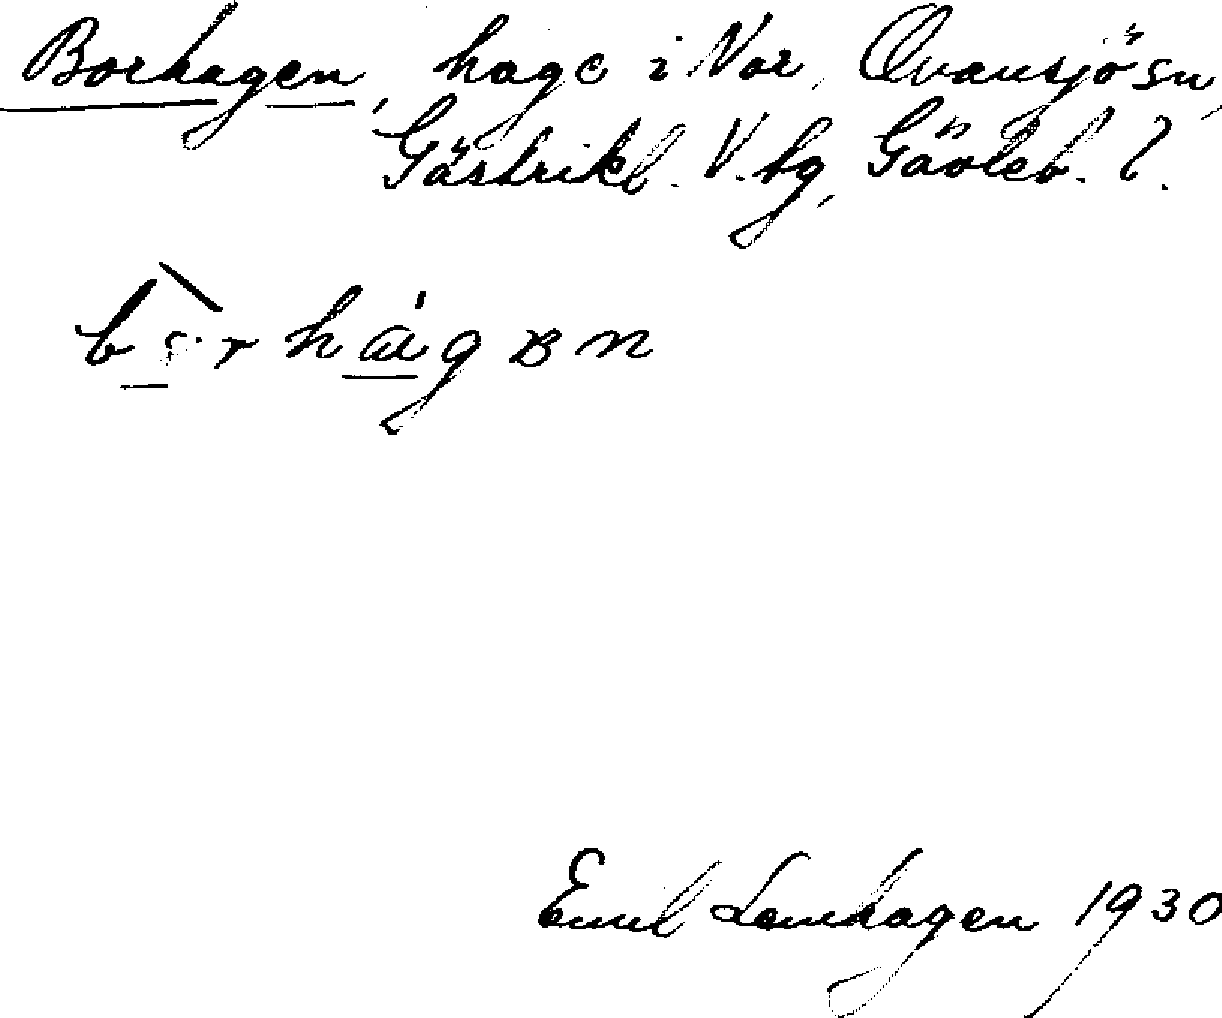 Borhagen, hage i Nor, Ovansjö sn,
Gästrikl. V. tg, Gävleb. l.
hågən
Emil Lamhagen 1930